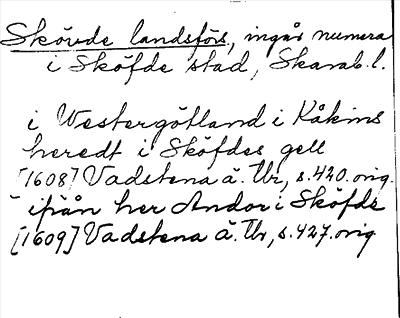 Skövde landsförs, ingår numera
i Sköfde stad, Skarab. l.
i Westergötland i Kåkins
heredt i Sköfdes gell
[1608] Vadstena ä. Tbr, s. 420. orig.
ifrån her Andor i Sköfde
[1609] Vadstena ä. Tbr, s. 427. orig